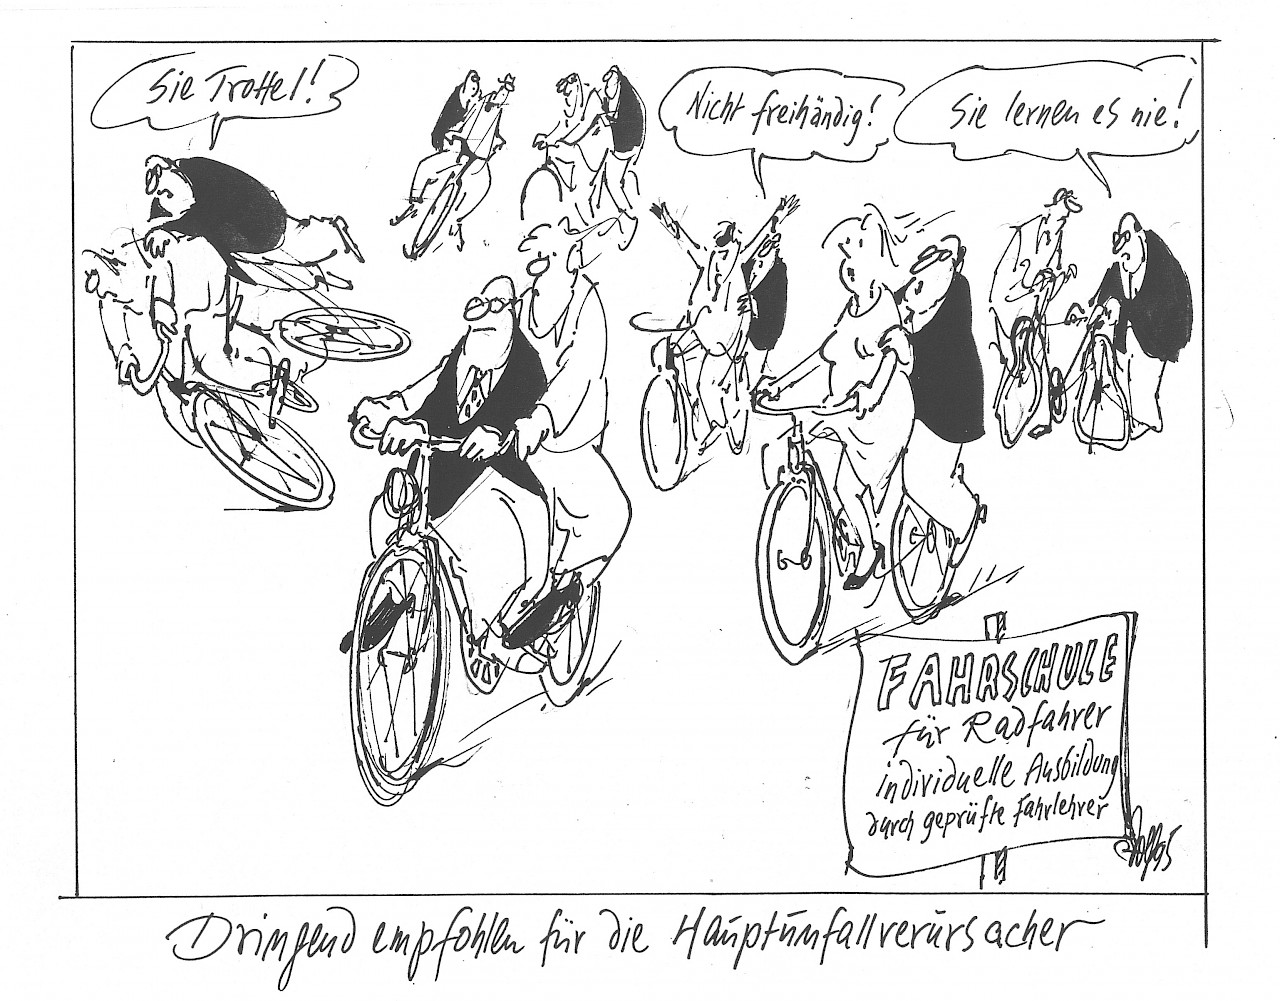 Sie Trottel!
Nicht freihändig!
Sie lernen es nie!
FAHRSCHULE
für Radfahrer
individuelle Ausbildung
durch geprüfte Fahrlehrer
Dringend empfohlen für die Hauptunfallverursacher